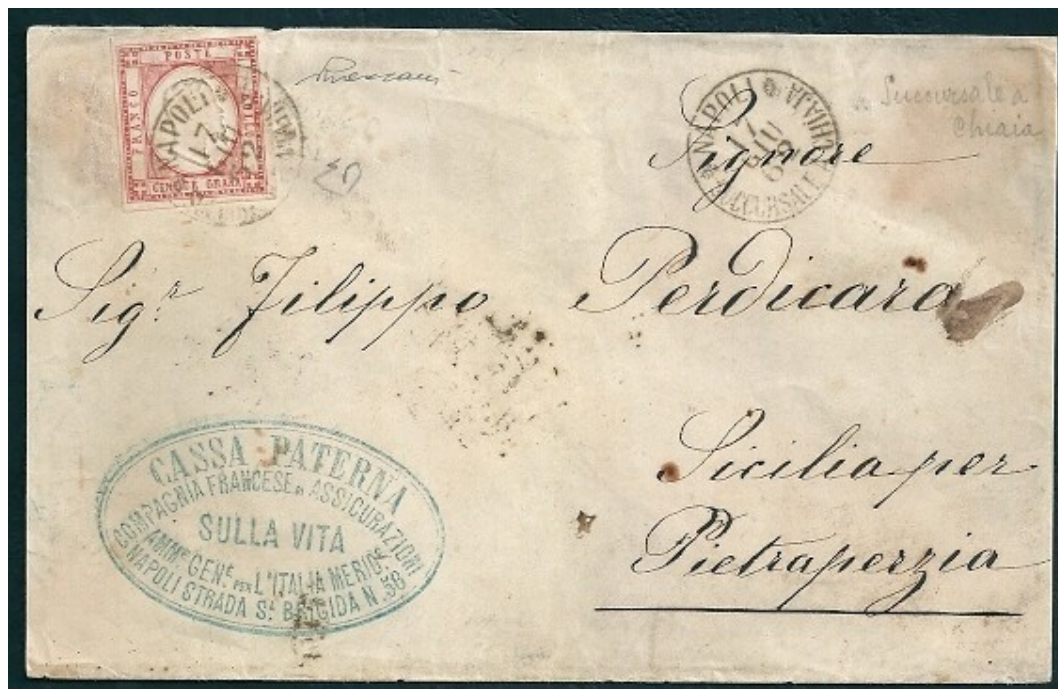 POSTE
FRANCO
BOLLO
GRANA
NAPOLI
17
NAPOLI CHIAJA
17
GIU
62
SUCCURSALE
Succursale a
Chiaia
Signore
Sigr Filippo Perdicara
Sicilia per
Pietraperzia
CASSA PATERNA
COMPAGNIA FRANCESE DI ASSICURAZIONI
SULLA VITA
AMME GENE PER L'ITALIA MERIDE
NAPOLI STRADA SA BRIGIDA N. 36